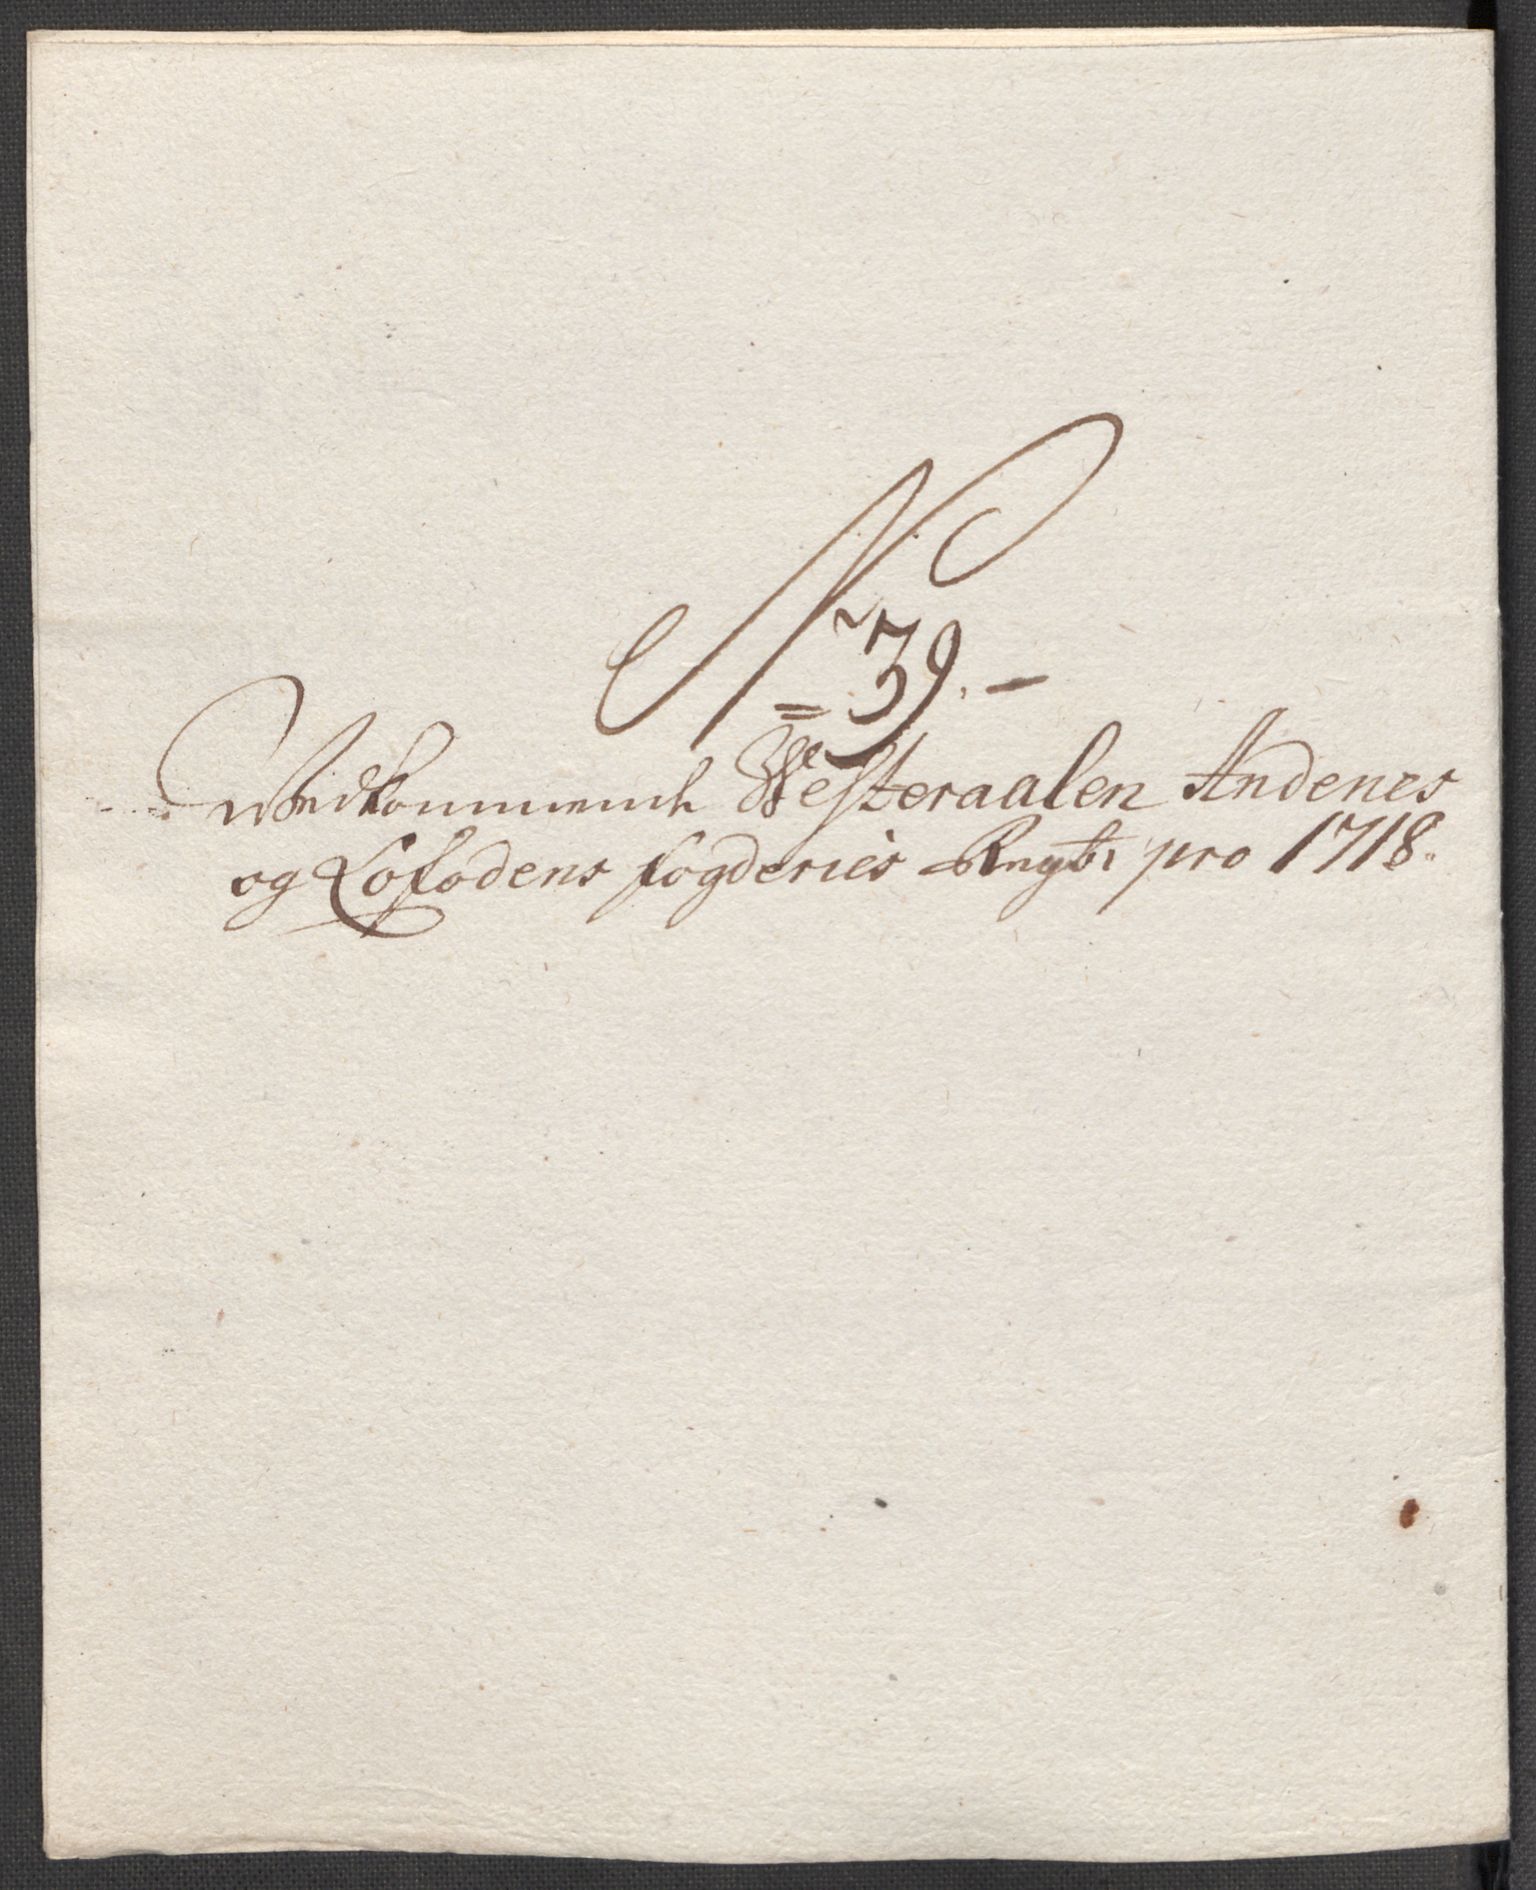 No 39.
Vedkommende Westeraalen Andenes
og Lofodens fogderies Regb: pro 1718.